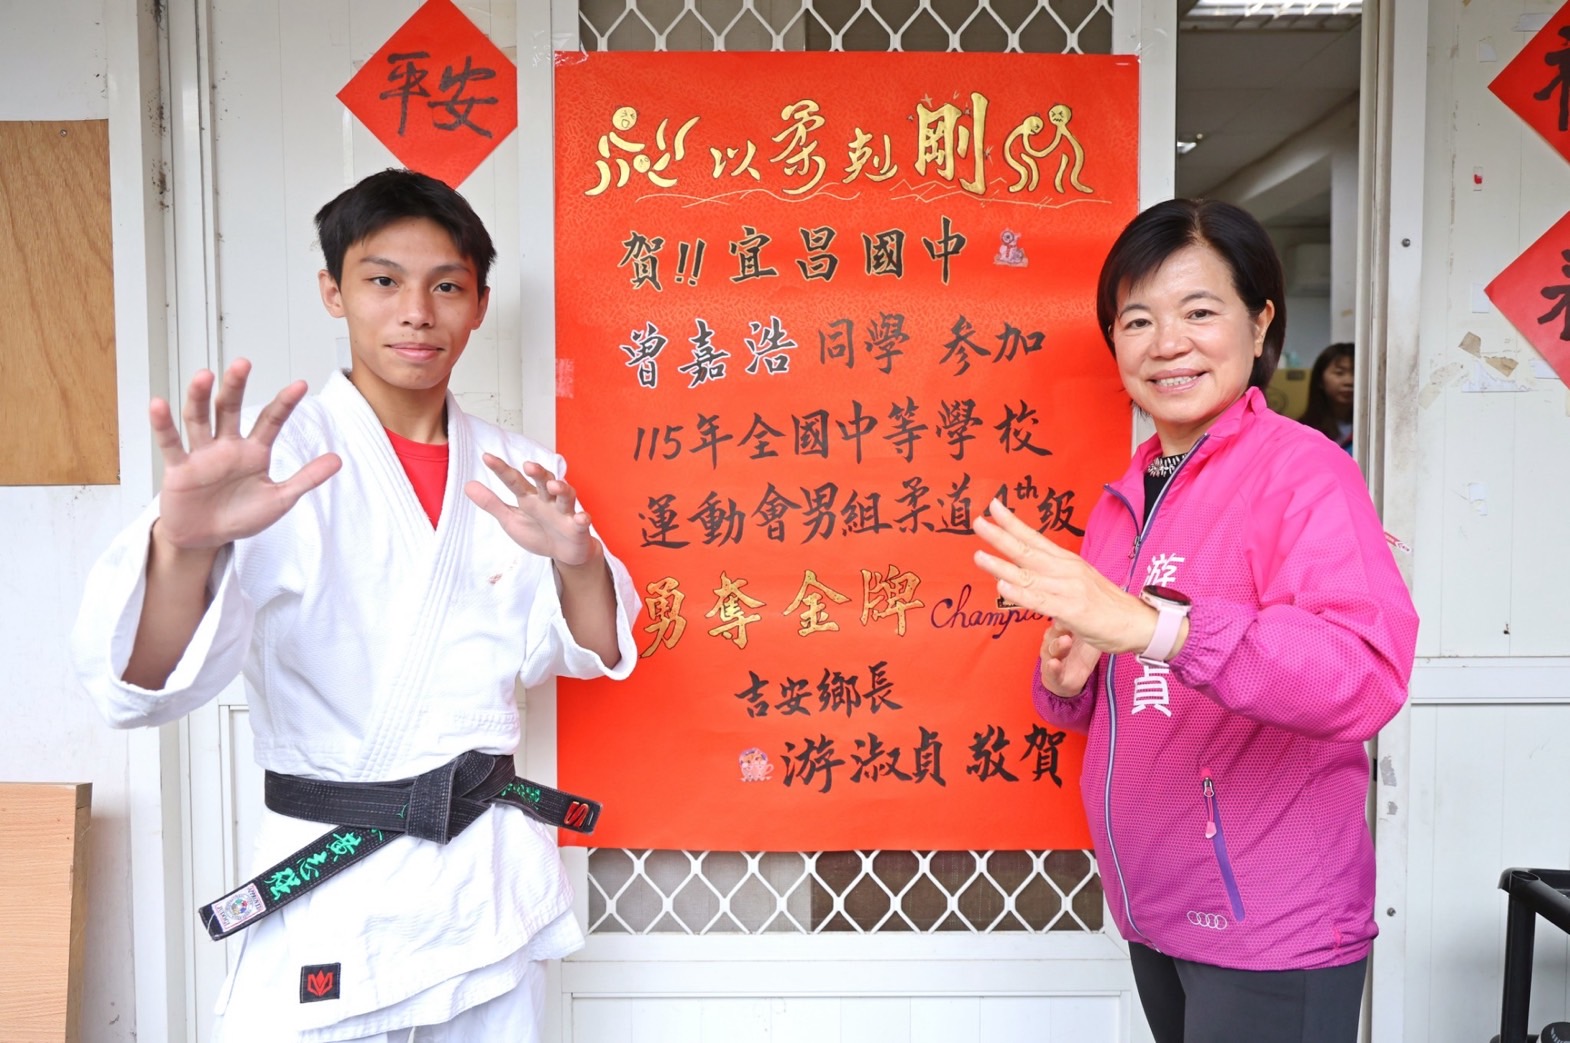 平安
以柔剋剛
賀!! 宜昌國中
曾嘉浩同學 參加
115年全國中等學校
運動會男組柔道4th級
勇奪金牌 Champion
吉安鄉長
游淑貞 敬賀
游
貞